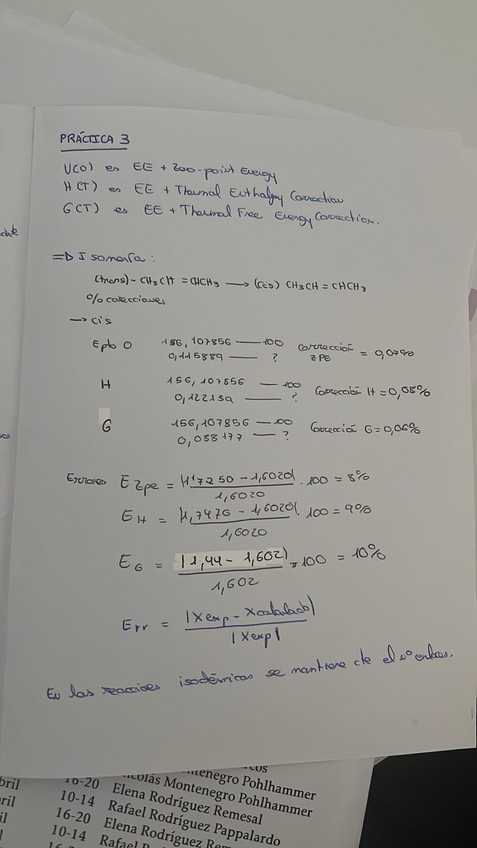 PRÁCTICA 3
U(0) es EE + Zoo-point Energy
H(T) es EE + Thermal Enthalpy Correction
G(T) es EE + Thermal Free Energy Correction.
=D Isomería:
(trans)-CH3CH = CHCH3 → (cis) CH3CH = CHCH3
% correcciones
→ cis
E pto 0 156,107856 — 100 corrección = 0,07%
0,115889 — ? ZPE
H 156,107856 — 100 Corrección H = 0,08%
0,122139 — ?
G 156,107856 — 100 Corrección G = 0,06%
0,088177 — ?
Errores E Zpe = |1'7250 - 1,6020| . 100 = 8%
1,6020
E H = |1,7476 - 1,6020| . 100 = 9%
1,6020
E G = |1,44 - 1,602| * 100 = 10%
1,602
Err = |Xexp - Xcalculado|
|Xexp|
En las reacciones isodérmicas se mantiene cte el nº enlaces.
ril 16-20 Nicolás Montenegro Pohlhammer
ril 10-14 Elena Rodríguez Remesal
il 16-20 Rafael Rodríguez Pappalardo
10-14 Elena Rodríguez